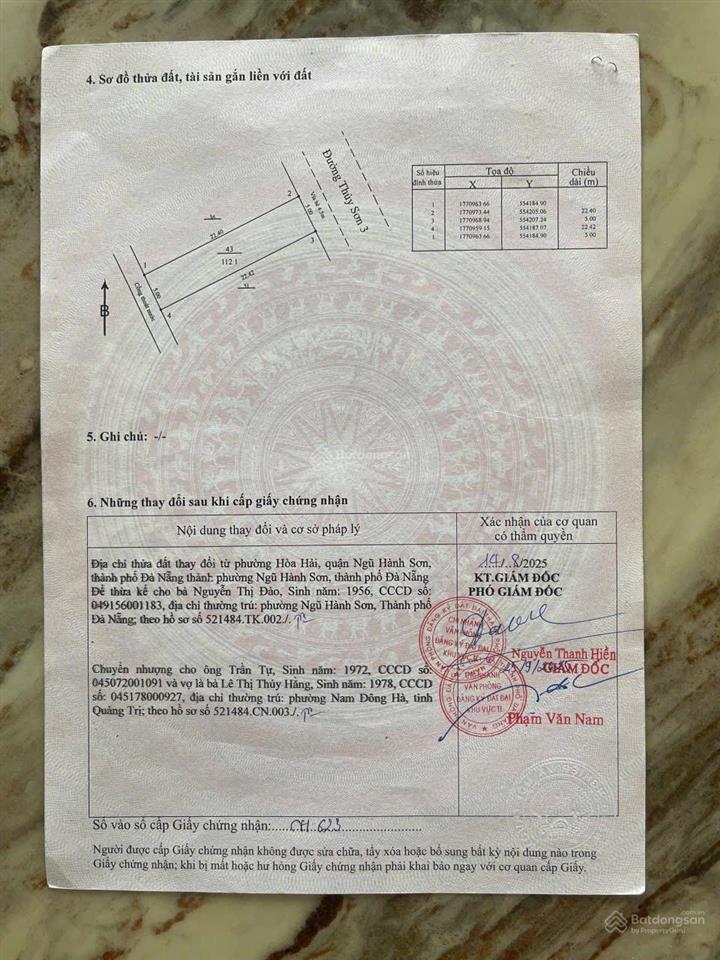 4. Sơ đồ thửa đất, tài sản gắn liền với đất
Đường Thủy Sơn 3
Vỉa hè 4,5m
2
5.00
3
22.40
43
112.1
22.42
1
5.00
4
Cống thoát nước
B
Số hiệu đỉnh thửa
Tọa độ
X
Y
Chiều dài (m)
1 1770963.66 554184.90
22.40
2 1770973.44 554205.06
5.00
3 1770968.94 554207.24
22.42
4 1770959.15 554187.07
5.00
1 1770963.66 554184.90
5. Ghi chú: -/-
6. Những thay đổi sau khi cấp giấy chứng nhận
Nội dung thay đổi và cơ sở pháp lý
Xác nhận của cơ quan
có thẩm quyền
Địa chỉ thửa đất thay đổi từ phường Hòa Hải, quận Ngũ Hành Sơn,
thành phố Đà Nẵng thành: phường Ngũ Hành Sơn, thành phố Đà Nẵng
Để thừa kế cho bà Nguyễn Thị Đào, Sinh năm: 1956, CCCD số:
049156001183, địa chỉ thường trú: phường Ngũ Hành Sơn, Thành phố
Đà Nẵng; theo hồ sơ số 521484.TK.002./.
14/8/2025
KT.GIÁM ĐỐC
PHÓ GIÁM ĐỐC
Nguyễn Thanh Hiền
Chuyển nhượng cho ông Trần Tự, Sinh năm: 1972, CCCD số:
045072001091 và vợ là bà Lê Thị Thúy Hằng, Sinh năm: 1978, CCCD
số: 045178000927, địa chỉ thường trú: phường Nam Đông Hà, tỉnh
Quảng Trị; theo hồ sơ số 521484.CN.003./.
GIÁM ĐỐC
Phạm Văn Nam
CHI NHÁNH
VĂN PHÒNG
ĐĂNG KÝ ĐẤT ĐAI
KHU VỰC II
Số vào sổ cấp Giấy chứng nhận:.....CH 623......................
Người được cấp Giấy chứng nhận không được sửa chữa, tẩy xóa hoặc bổ sung bất kỳ nội dung nào trong
Giấy chứng nhận; khi bị mất hoặc hư hỏng Giấy chứng nhận phải khai báo ngay với cơ quan cấp Giấy.
Batdongsan
by PropertyGuru